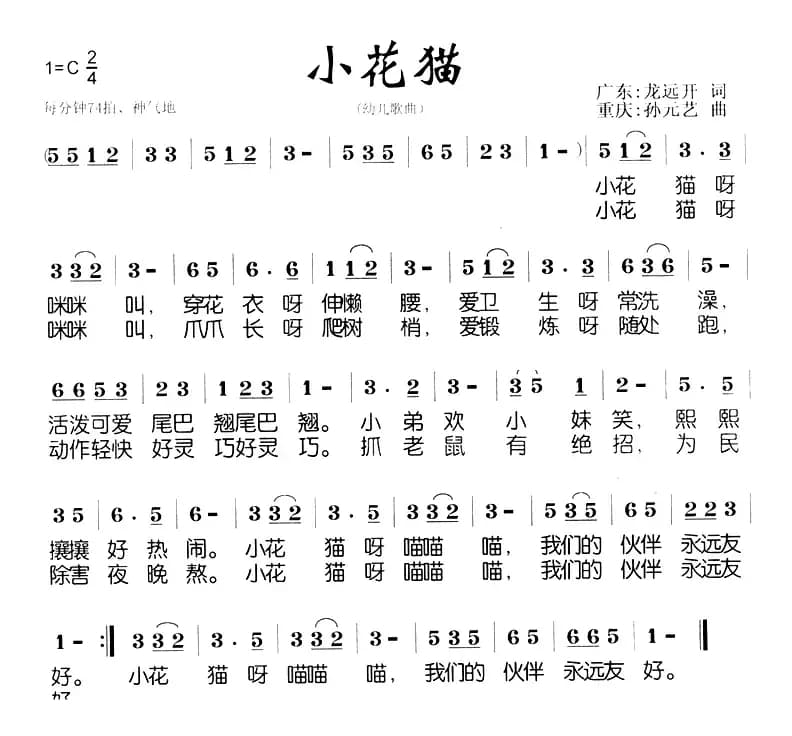 小花猫
1=C 2/4
每分钟74拍、神气地
(幼儿歌曲)
广东:龙远开 词
重庆:孙元艺 曲
(5512 | 33 | 5512 | 3- | 535 | 65 | 23 | 1-) | 512 | 3·3 |
小花 猫呀
小花 猫呀
332 | 3- | 65 | 6·6 | 112 | 3- | 512 | 3·3 | 636 | 5- |
咪咪 叫, 穿花 衣呀 伸懒 腰, 爱卫 生呀 常洗 澡,
咪咪 叫, 爪爪 长呀 爬树 梢, 爱锻 炼呀 随处 跑,
6653 | 23 | 123 | 1- | 3·2 | 3- | 35 1 | 2- | 5·5 |
活泼可爱 尾巴 翘尾巴 翘。小弟欢 小妹笑, 熙熙
动作轻快 好灵 巧好灵 巧。抓老鼠 有绝招, 为民
35 | 6·5 | 6- | 332 | 3·5 | 332 | 3- | 535 | 65 | 223 |
攘攘 好热 闹。小花 猫呀 喵喵 喵, 我们的 伙伴 永远友
除害 夜晚 熬。小花 猫呀 喵喵 喵, 我们的 伙伴 永远友
1- :‖ 332 | 3·5 | 332 | 3- | 535 | 65 | 665 | 1- ‖
好。 小花 猫呀 喵喵 喵, 我们的 伙伴 永远友 好。
好